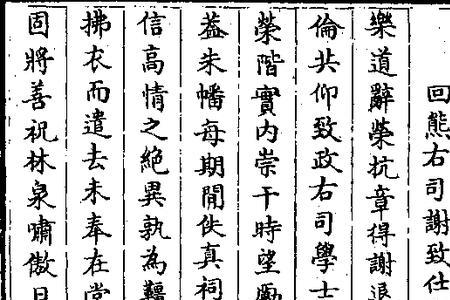 回熊右司謝致仕
樂道辭榮抗章得謝退
倫共仰致政右司學士
榮階實内崇干時望勵
蓋朱幡每期閒佚真祠
信高情之絶異孰為韁
拂衣而遣去未奉在
固將善祝林泉嘯傲日